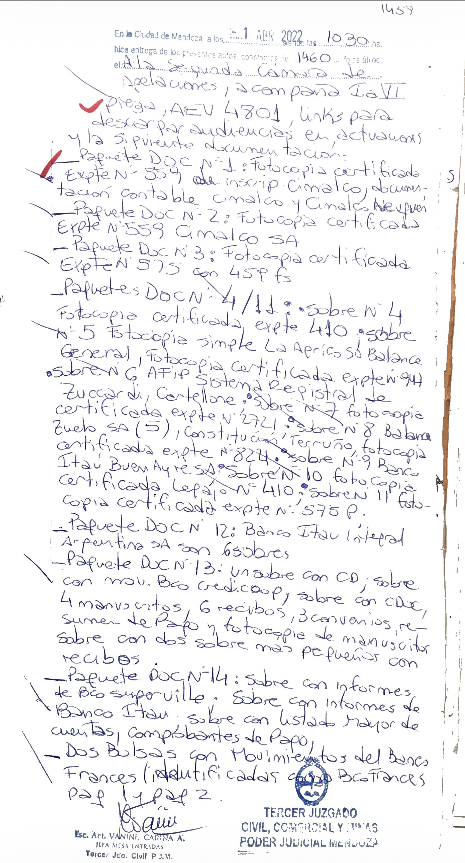 1459
En la Ciudad de Mendoza a los 1 ABR 2022 siendo las 10 30 hs.
hice entrega de los presentes autos, constantes de 1460
a la Segunda Cámara de
Apelaciones, acompaña I a VI
pieza, AEV 4801, links para
descargar audiencias en actuaciones
y la siguiente documentación:
_Paquete DOC Nº1: Fotocopia certificada
Expte Nº 559 de inscrip Cimalco, documen-
tación contable Cimalco y Cimalco Neuquén
_Paquete Doc Nº 2: Fotocopia certificada
Expte Nº559 Cimalco SA
_Paquete Doc Nº 3: Fotocopia certificada
Expte Nº 575 con 459 fs
_Paquetes DOC Nº 4/11: Sobre Nº 4
Fotocopia certificada, expte 410. sobre
Nº 5 Fotocopia simple La Agrico SA Balance
General, Fotocopia certificada expte Nº
Sobre Nº 6 AFip Sistema Registral de
Zuccardi, Cartellone. Sobre Nº 7 fotocopia
certificada expte Nº2721. sobre Nº 8 Balance
Zuelo SA (5), Constitución Terruño, fotocopia
certificada expte Nº 824. sobre Nº 9 Banco
Itaú Buen Ayre SA. Sobre Nº 10 fotocopia
certificada Legajo Nº 410. sobre Nº 11 foto-
copia certificada expte Nº 575 P.
_Paquete DOC Nº 12: Banco Itaú Integral
Argentina SA son 6 sobres
_Paquete DOC Nº 13: un sobre con CD, sobre
con mov. Bco Credicoop, sobre con
4 manuscritos, 6 recibos, 3 convenios, re-
sumen de Pago y fotocopia de manuscritos
sobre con dos sobre más pequeños con
recibos.
_Paquete DOC Nº14: Sobre con informes
de Bco superville. Sobre con informes de
Banco Itaú, sobre con listado Mayor de
cuentas, comprobantes de Pago,
_Dos Bolsas con Movimientos del Banco
Frances (identificadas como Bco Frances
pag 1 y pag 2.
Esc. Act. VANINE, CARINA A.
JEFA MESA ENTRADAS
Tercer Jdo. Civil P.J.M.
TERCER JUZGADO
CIVIL, COMERCIAL Y MINAS
PODER JUDICIAL MENDOZA